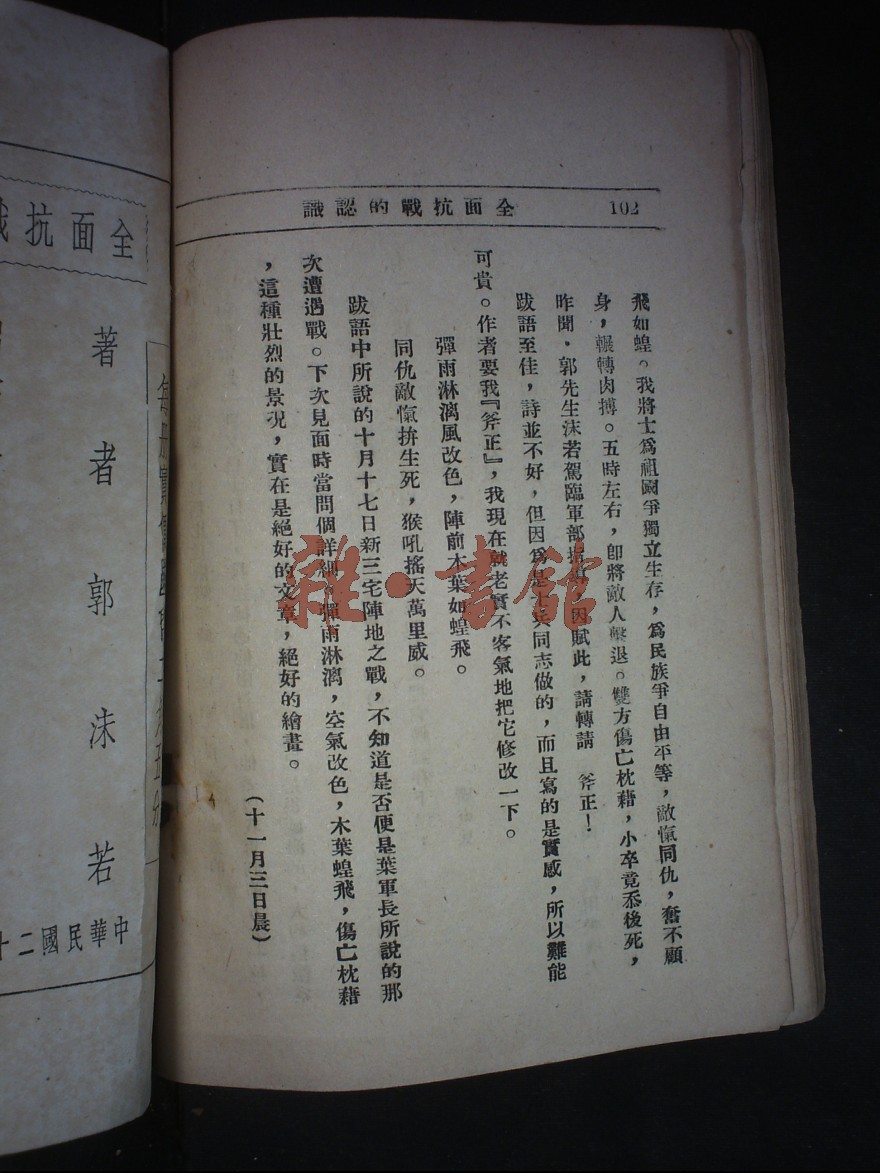 102
全面抗戰的認識
飛如蝗。我將士爲祖國爭獨立生存，爲民族爭自由平等，敵愾同仇，奮不顧
身，輾轉肉搏。五時左右，卽將敵人擊退。雙方傷亡枕藉，小卒竟忝後死，
昨聞．郭先生沫若駕臨軍部，因賦此，請轉請　斧正！
跋語至佳，詩並不好，但因爲是士兵同志做的，而且寫的是實感，所以難能
可貴。作者要我『斧正』，我現在就老實不客氣地把它修改一下。
彈雨淋漓風改色，陣前木葉如蝗飛。
同仇敵愾拚生死，猴吼搖天萬里威。
跋語中所說的十月十七日新三宅陣地之戰，不知道是否便是葉軍長所說的那
次遭遇戰。下次見面時當問個詳細。彈雨淋漓，空氣改色，木葉蝗飛，傷亡枕藉
，這種壯烈的景況，實在是絕好的文章，絕好的繪畫。
（十一月三日晨）
雜·書館
全面抗戰
著者郭沫若
中華民國二十